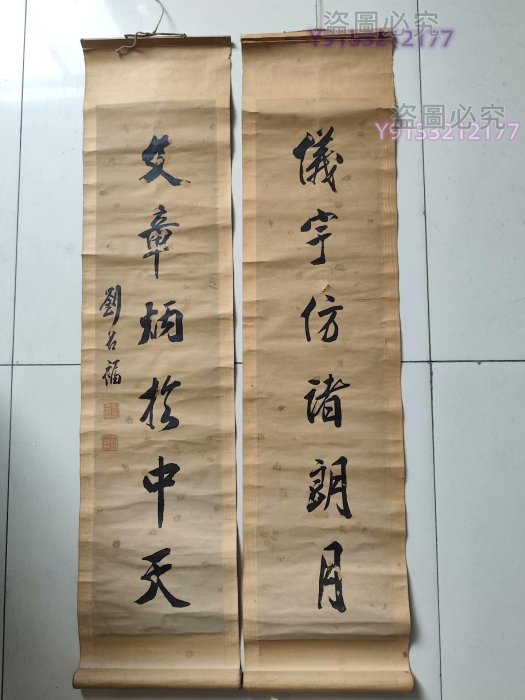 盜圖必究
Y9133212177
盜圖必究
Y9133212177
儀宇仿諸朗月
文章炳於中天
劉名福